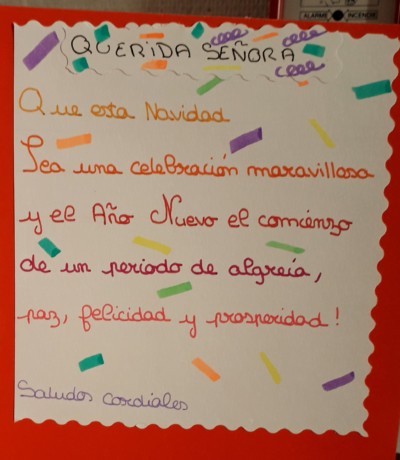 ALARME INCENDIE
QUERIDA SEÑORA
Que esta Navidad
Sea una celebración maravillosa
y el Año Nuevo el comienzo
de un periodo de algreía,
paz, felicidad y prosperidad!
Saludos cordiales